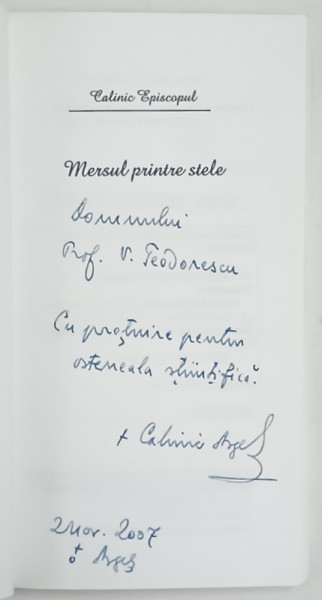 Calinic Episcopul
Mersul printre stele
Domnului
Prof. V. Teodorescu
Cu prețuire pentru
osteneala științifică.
+ Calinic Argeș
2 Nov. 2007
Argeș